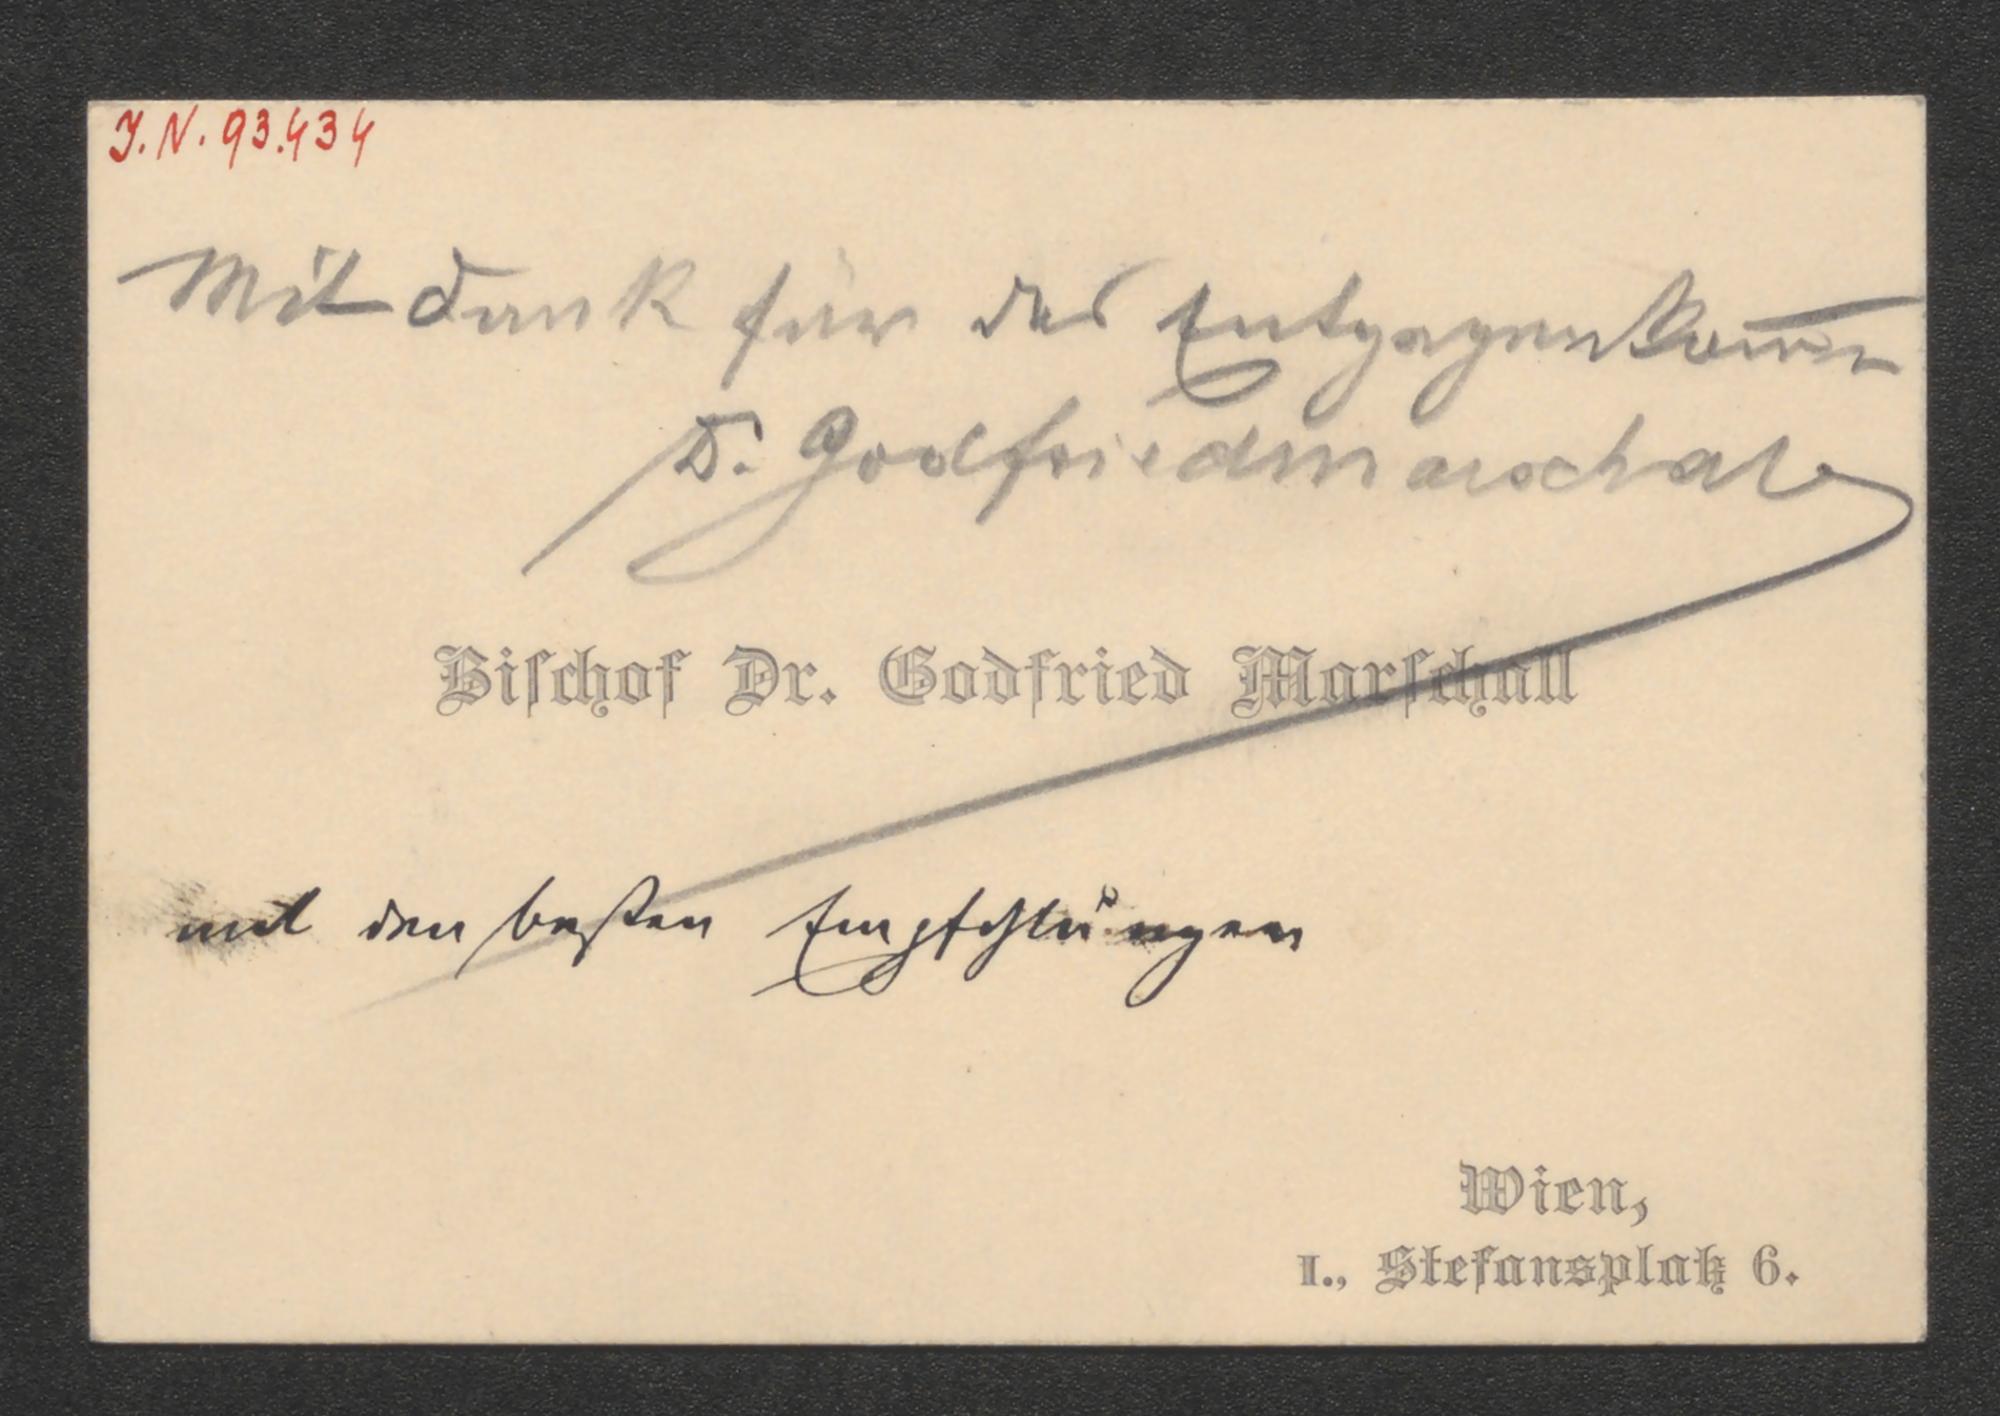 J.N. 93.434
Mit Dank für das Entgegenkom̅en
D. Godfried Marschall
Bischof Dr. Godfried Marschall
mit den besten Empfehlungen
Wien,
I., Stefansplatz 6.